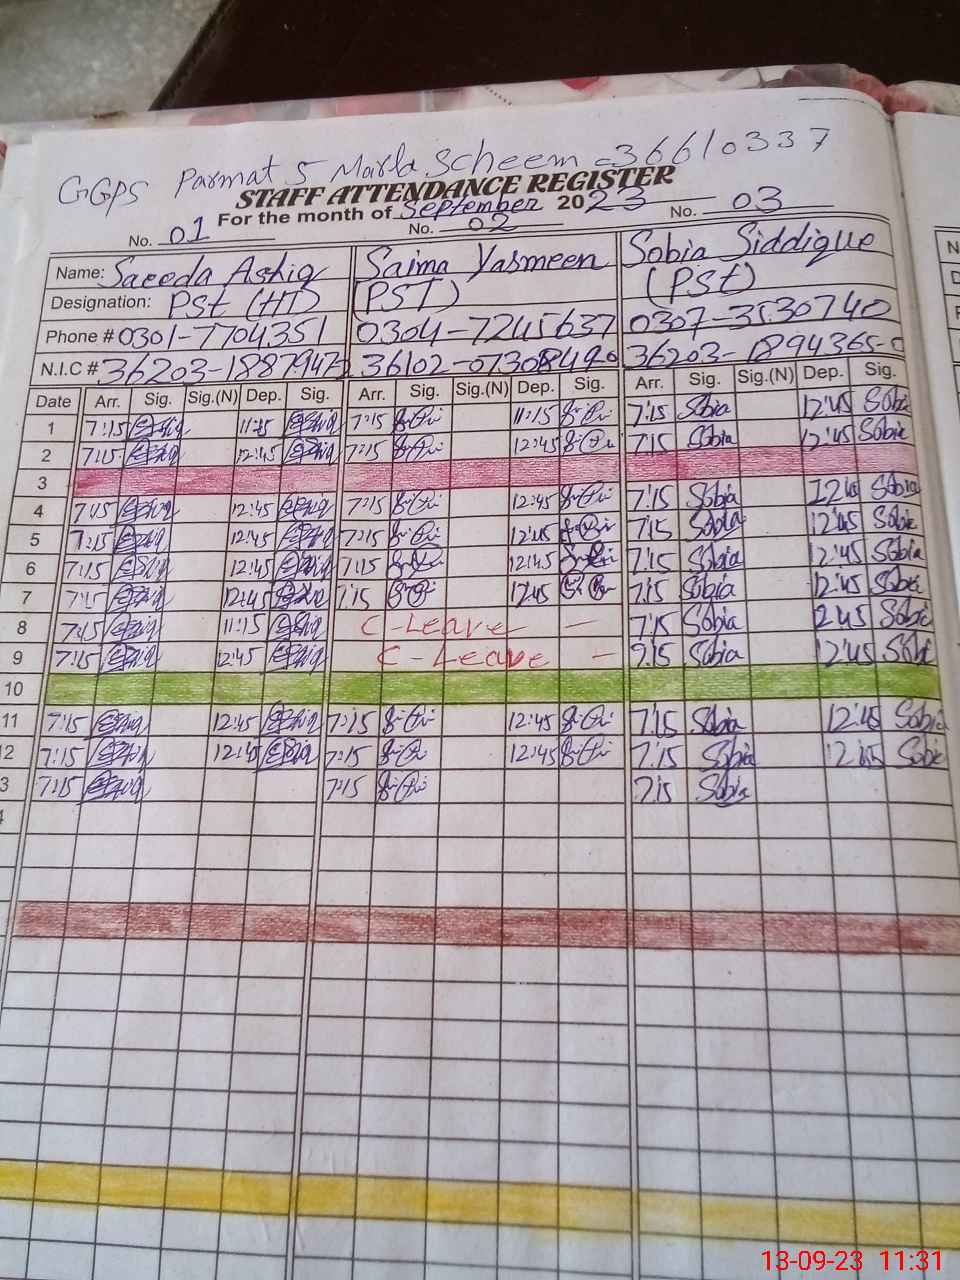 GGPS Parmat 5 Marla Scheem - 36610337
STAFF ATTENDANCE REGISTER
For the month of September 2023
No. 01 No. 02 No. 03
Name: Saeeda Ashiq Saima Yasmeen Sobia Siddique
Designation: PSt (HT) (PST) (PSt)
Phone # 0301-7704351 0304-7245637 0307-3530740
N.I.C # 36203-1887947 36102-0730 490 36203-1894365-
Date Arr. Sig. Sig.(N) Dep. Sig. Arr. Sig. Sig.(N) Dep. Sig. Arr. Sig. Sig.(N) Dep. Sig.
1 7:15 11:15 7:15 11:15 7:15 Sobia 12:45 Sobia
2 7:15 12:45 7:15 12:45 7:15 Sobia 12:45 Sobia
3
4 7:15 12:45 7:15 12:45 7:15 Sobia Sobia
5 7:15 12:45 7:15 12:45 7:15 Sobia 12:45 Sobia
6 7:15 12:45 7:15 12:45 7:15 Sobia 12:45 Sobia
7 7:15 12:45 7:15 12:45 7:15 Sobia 12:45 Sobia
8 7:15 11:15 C-Leave - 7:15 Sobia 2:45 Sobia
9 7:15 12:45 C-Leave - Sobia 12:45 Sobia
10
11 7:15 12:45 7:15 12:45 7:15 Sobia 12:45 Sobia
12 7:15 12:45 7:15 12:45 7:15 Sobia 12:45 Sobia
3 7:15 7:15 7:15 Sobia
13-09-23 11:31